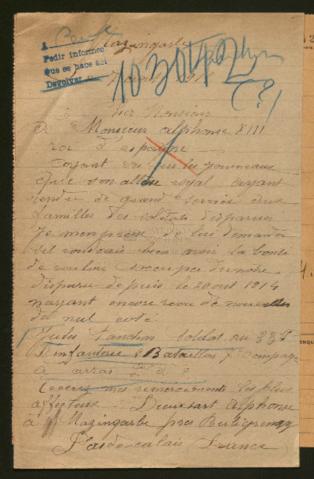 A
Pedir informes
que se hace así
Devolver
Mazingarbe
Monsieur
Monsieur alphonse XIII
roi d'espagne
voyant sur les journeaux
que son altesse royal ayant
rendu de grand service aux
familles des soldats disparus
je m'empresse de lui demander
sil voudrais bien avoir la bonté
de vouloir s'occuper de notre
disparu depuis le 20 aout 1914
nayant encore recu de nouvelles
del nul coté
Jules soldat au 33e
D'infanterie Bataillon compagnie
à arras
recevez mes remerciements les plus
affectueux alphonse
à Mazingarbe près
Pas de calais France